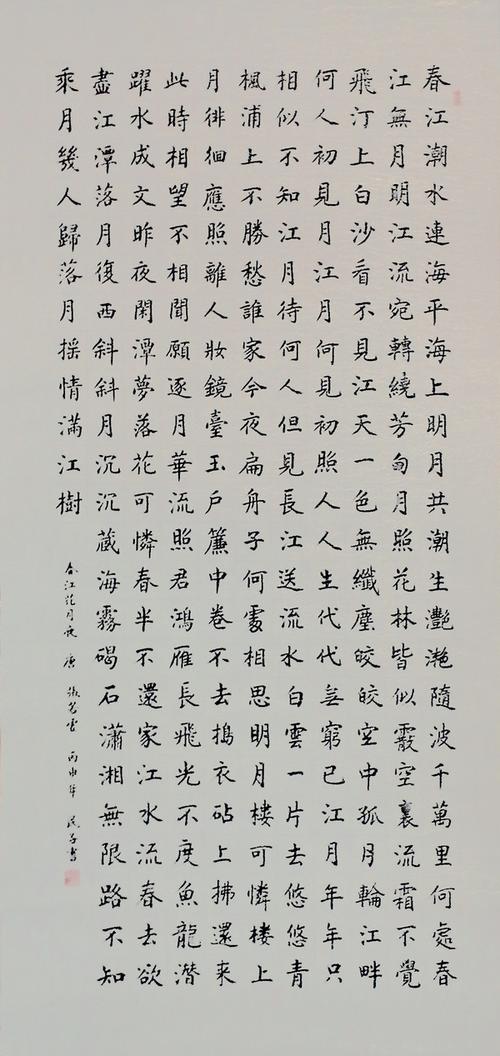 春江潮水連海平海上明月共潮生灩灩隨波千萬里何處春
江無月明江流宛轉繞芳甸月照花林皆似霰空裏流霜不覺
飛汀上白沙看不見江天一色無纖塵皎皎空中孤月輪江畔
何人初見月江月何見初照人人生代代無窮已江月年年只
相似不知江月待何人但見長江送流水白雲一片去悠悠青
楓浦上不勝愁誰家今夜扁舟子何處相思明月樓可憐樓上
月徘徊應照離人妝鏡臺玉戶簾中卷不去搗衣砧上拂還來
此時相望不相聞願逐月華流照君鴻雁長飛光不度魚龍潛
躍水成文昨夜閑潭夢落花可憐春半不還家江水流春去欲
盡江潭落月復西斜斜月沉沉藏海霧碣石瀟湘無限路不知
乘月幾人歸落月搖情滿江樹
春江花月夜 唐 張若虛 丙申年